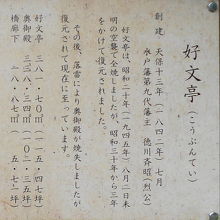 好文亭(こうぶんてい)
創建 天保十三年(一八四二年)七月
水戸藩第九代藩主 徳川斉昭(烈公)
好文亭は、昭和二十年(一九四五年)八月二日未
明の空襲で全焼しましたが、昭和三十年から三年
をかけて復元されました。
その後、落雷により奥御殿が焼失しましたが
復元されて現在に至っています。
好文亭
奥御殿
橋廊下